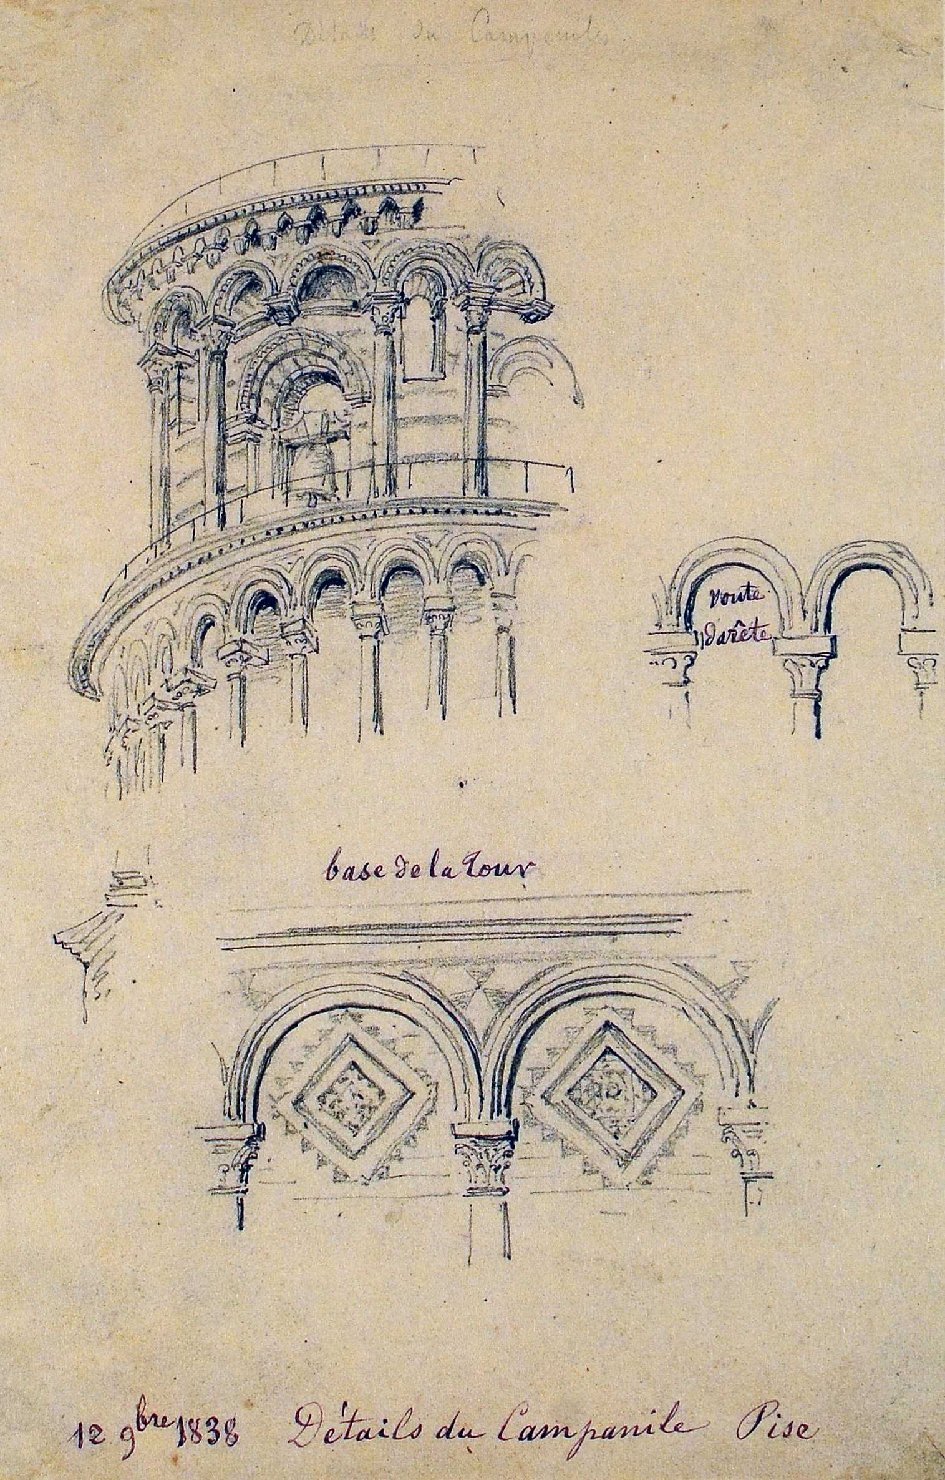 Détails du Campanile
voute
darête
base de la Tour
12 9bre 1838 Détails du Campanile Pise